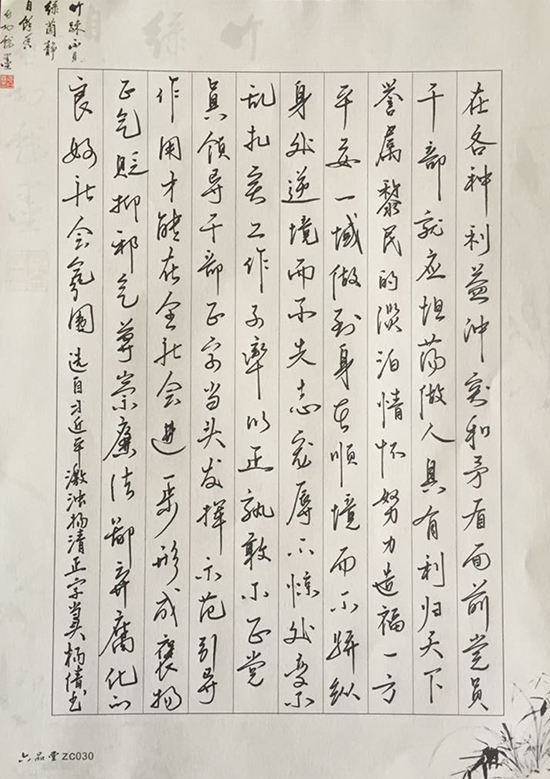 在各种利益冲突和矛盾面前党员
干部就应坦荡做人具有利归天下
誉属黎民的淡泊情怀努力造福一方
平安一域做到身在顺境而不骄纵
身处逆境而不失志宠辱不惊处变不
乱扎实工作子率以正孰敢不正党
员领导干部正字当头发挥示范引导
作用才能在全社会进一步形成褒扬
正气贬抑邪气尊崇廉洁鄙弃腐化的
良好社会氛围 选自习近平激浊扬清正字当头 柄倩书
竹疏
绿荫静
六品堂 ZC030